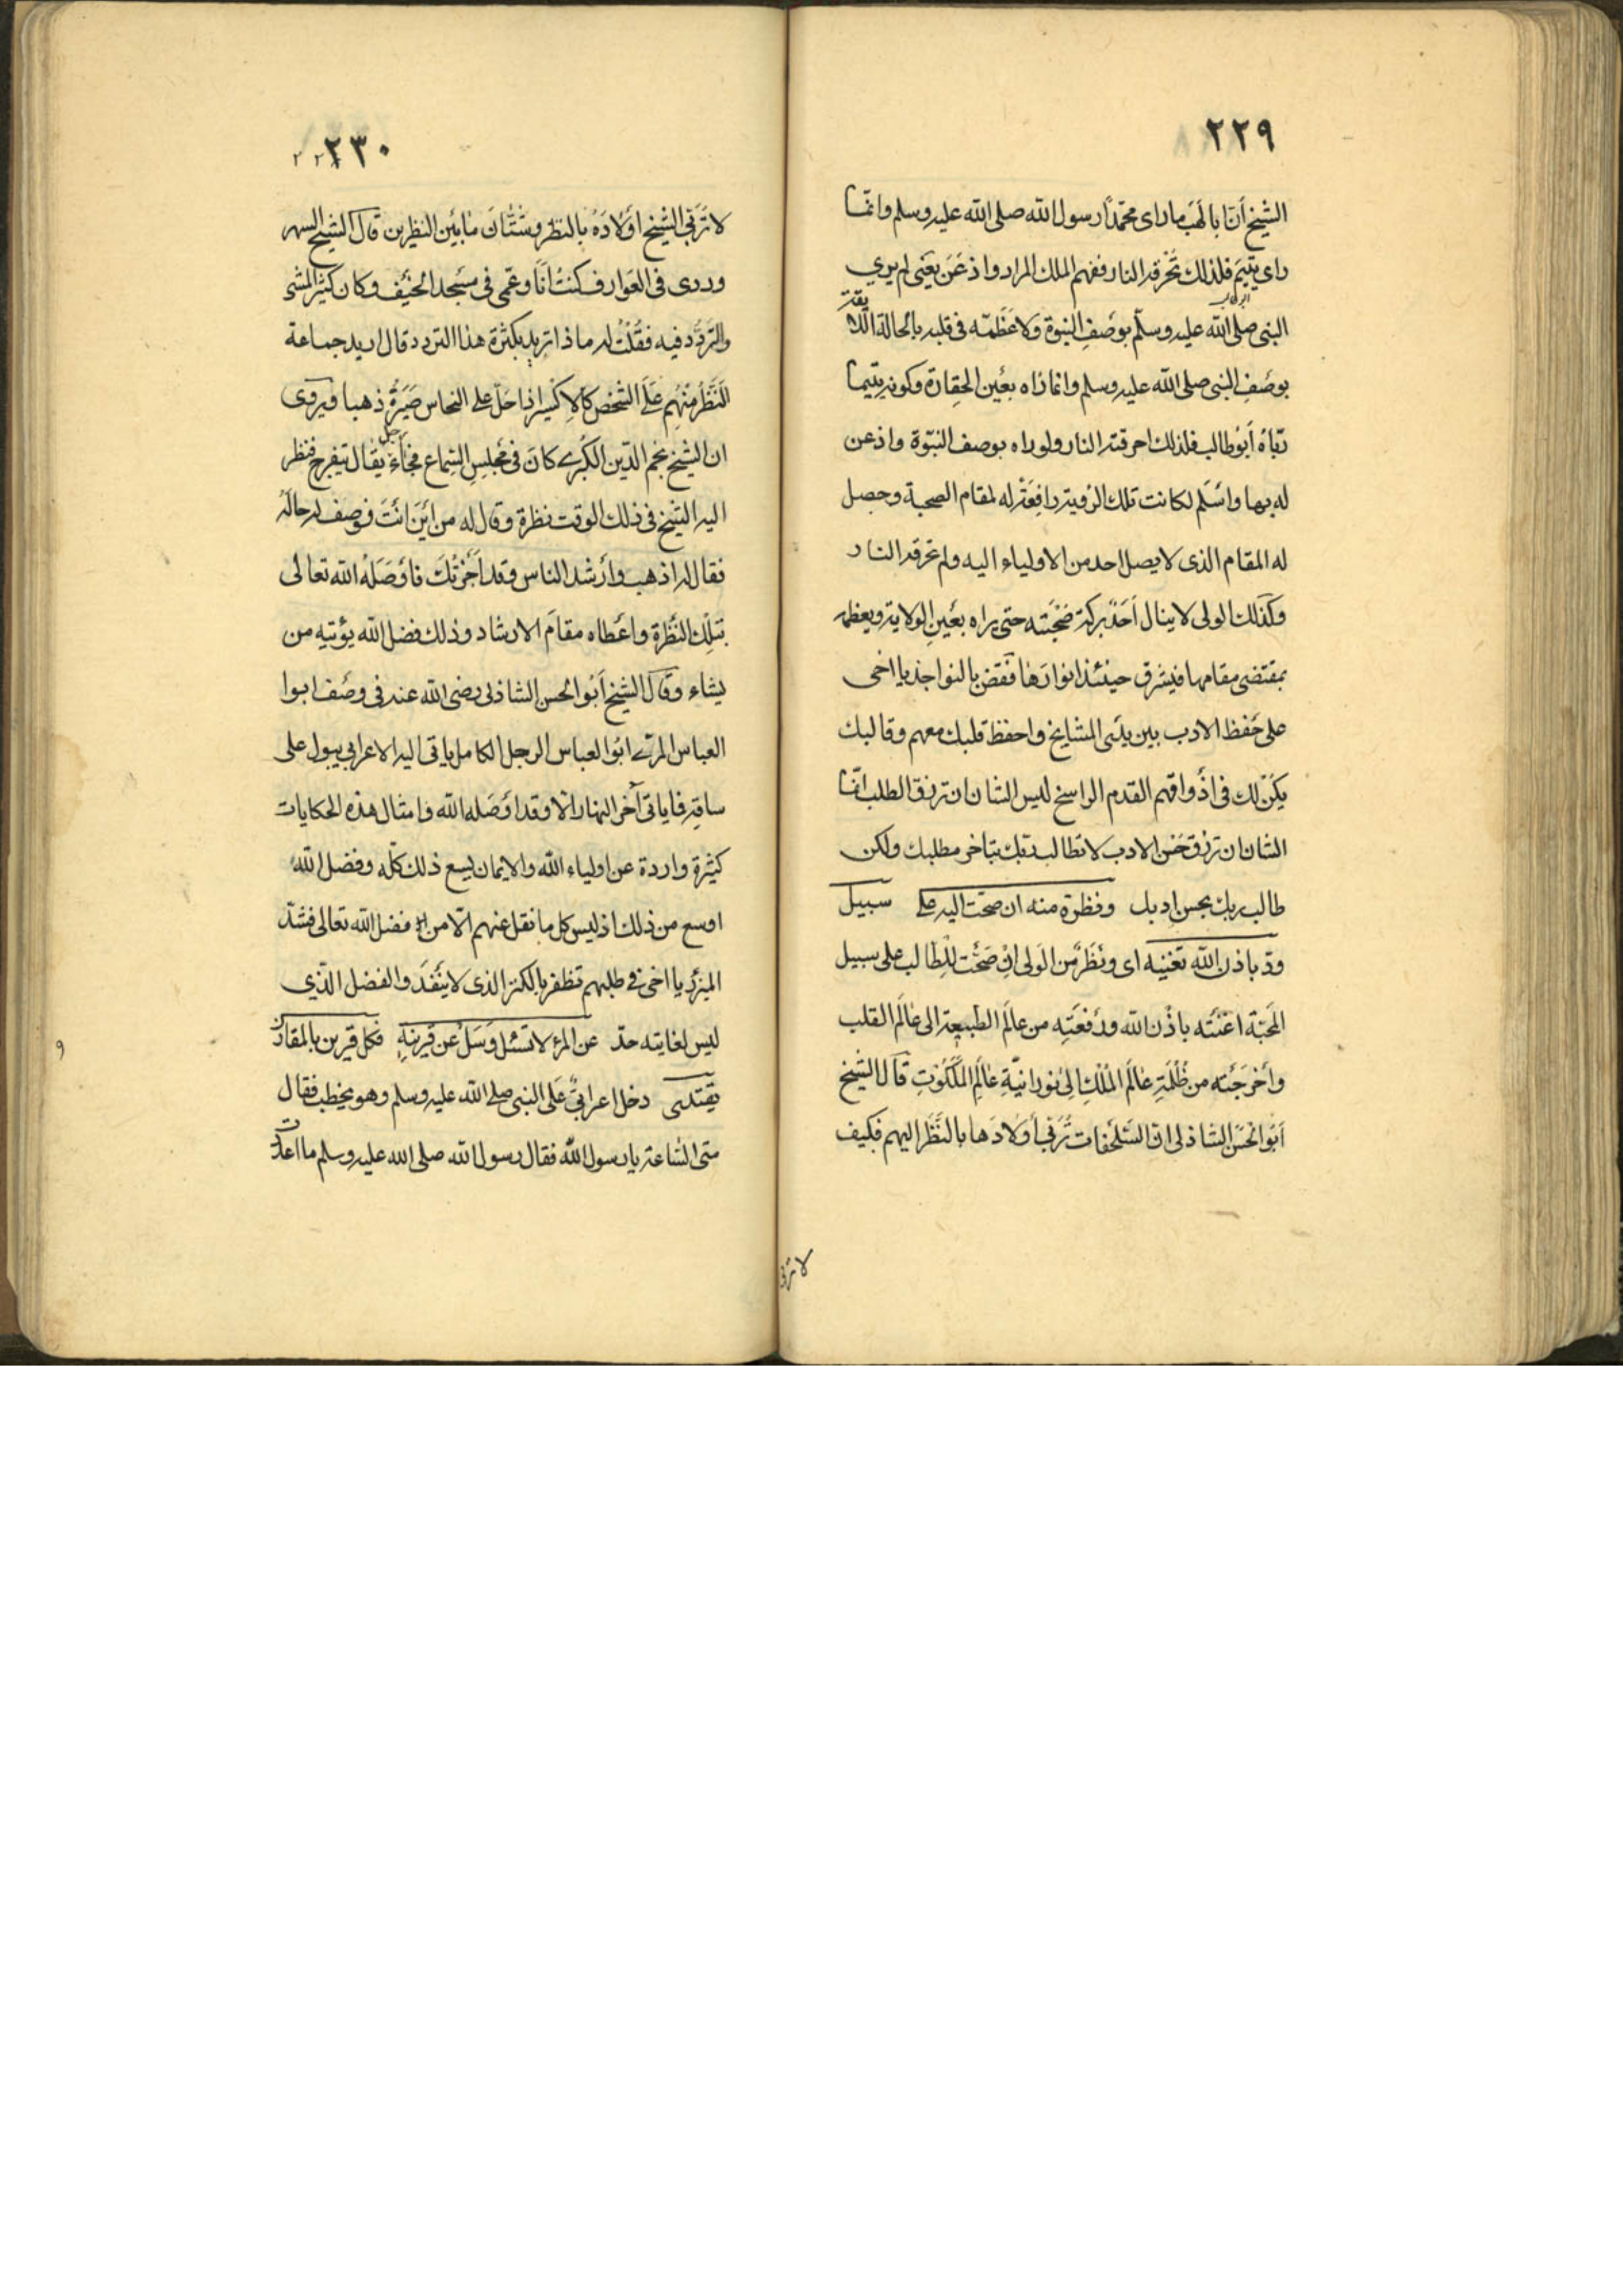 ٢٢٩
الشيخ أنّ ابا لهب ما رای محمّداً رسول الله صلى الله عليه وسلم وانمّا
رای يتيم فلذلك تحرقه النار ففهم الملك المراد واذعَن يعَنى لم يری
ابو لهب
النبى صلى الله عليه وسلّم بوصَفِ النبوة ولا عَظَّمَه فى قلبه بالحالة اللا
يقة
بوصَفِ النبى صلى الله عليه وسلم وانما رَاه بعَين الحِقارة وكونه يتيما
ربّاهُ أبُوطالب فلذلك احرقته النار ولو راه بوصف النبّوة واذعن
له بها واسَلم لكانت تلك الرؤية رافِعَةً له لمقام الصحبة وحصل
له المقام الذى لا يصل احد من الاولياء اليه ولم تحرقه النار
وكَذلك الولى لا ينال اَحَدٌ بركة صُحْبَته حتى يراه بعَينِ الولاية ويعظمه
بمقتضى مقامها فيشرق حينئذ انوارَها فَعَضّ بالنواجذ يا اخى
على حِفظ الادب بين يدَى المشايخ واحفظ قلبك معهم وقالبك
يكنُ لك فى اذْواقهم القدم الراسخ ليس الشان ان ترزق الطلب انّما
الشان ان ترزق حَسن الادب لا تطالب ربّك بتاخر مطلبك ولكن
طالب ربك بحسن ادبك ونظرة منه ان صحّت اليه على سبيل
ودّ باذن الله تغنيه ای ونَظَرٌ من الَولى انْ صَحَّتْ للِطالب على سبيل
المحَبّة اغنَتْه باذْن الله ورَفعَتِه من عالَم الطبيعة الى عالَم القلب
وأخرَجَتْه من ظُلْمَةِ عالَم المُلْكِ الىْ نورانيّةِ عالَمِ المَلَكُوتِ قالَ الشيخ
أبُو الحَسَن الشاذلى انّ السّلحفات تُرَبّى أوَلادَها بالنَّظَرَ اليهم فكيف
لا تربّى
٢٣٠
لا تَرَبّى الشيخ اوَلادَهُ بالنظر وشَتّانَ مابَيَن النظرين قالَ الشيخ السهر
وردی فى العَوارف كنتُ أنَا وعَمّى فى مسَجد الخيَف وكان كثيَر المشى
والتردّد فيه فقُلْتُ له ماذا تريد بكثَرة هذا التردد قال اريد جماعة
النَّظَرُ منْهُم عَلَى الشخص كالإكسير اذا حَلّ على النحاس صَيّرهُ ذهبا ويَروى
ان الشيخ نجم الدّين الكُبْرى كانَ فى مجْلِسِ السَماع فجاءَ
رجل
يقال يتفرج فنظر
اليه الشيخ فى ذلك الوقت نظرة وقال له من ايَن انَت فوصف له حالَهُ
فقال له اذهب وأرشد الناس وقد اَجَزْتُكَ فاوَصَلَهُ الله تعالى
بتلْك النَظْرة واعَطاه مقامَ الارشاد وذلك فضل الله يؤتيه من
يشاء وقَالَ الشيخ أبُو الحسن الشاذلى رضى الله عنه فى وصَف ابوا
العباس المرسى ابُو العباس الرجل الكامل ياتى اليه الاعرابى يبول على
ساقِه فلا ياتى آخر النهار الّا وقد اوَصَله الله وامثال هذه الحكايات
كثيرة واردة عن اولياء الله والايمان يسع ذلك كلّه وفضل الله
اوسع من ذلك اذ ليس كل ما نقل عنهم الّا من فضل الله تعالى فشدّ
الميزر يا اخى فى طلبهم تظفر بالكنز الذى لا ينَفَدَ والفضل الّذي
ليس لغايته حدّ عن المرءِ لا تسَئل وسَلْ عن قرينهِ فكل قرين بالمقارن
يقتدى دخل اعرابىٌ عَلَى النبى صلى الله عليه وسلم وهو يخطب فقال
متى السّاعة يا رسول الله فقال رسول الله صلى الله عليه وسلم ما اعددت
و